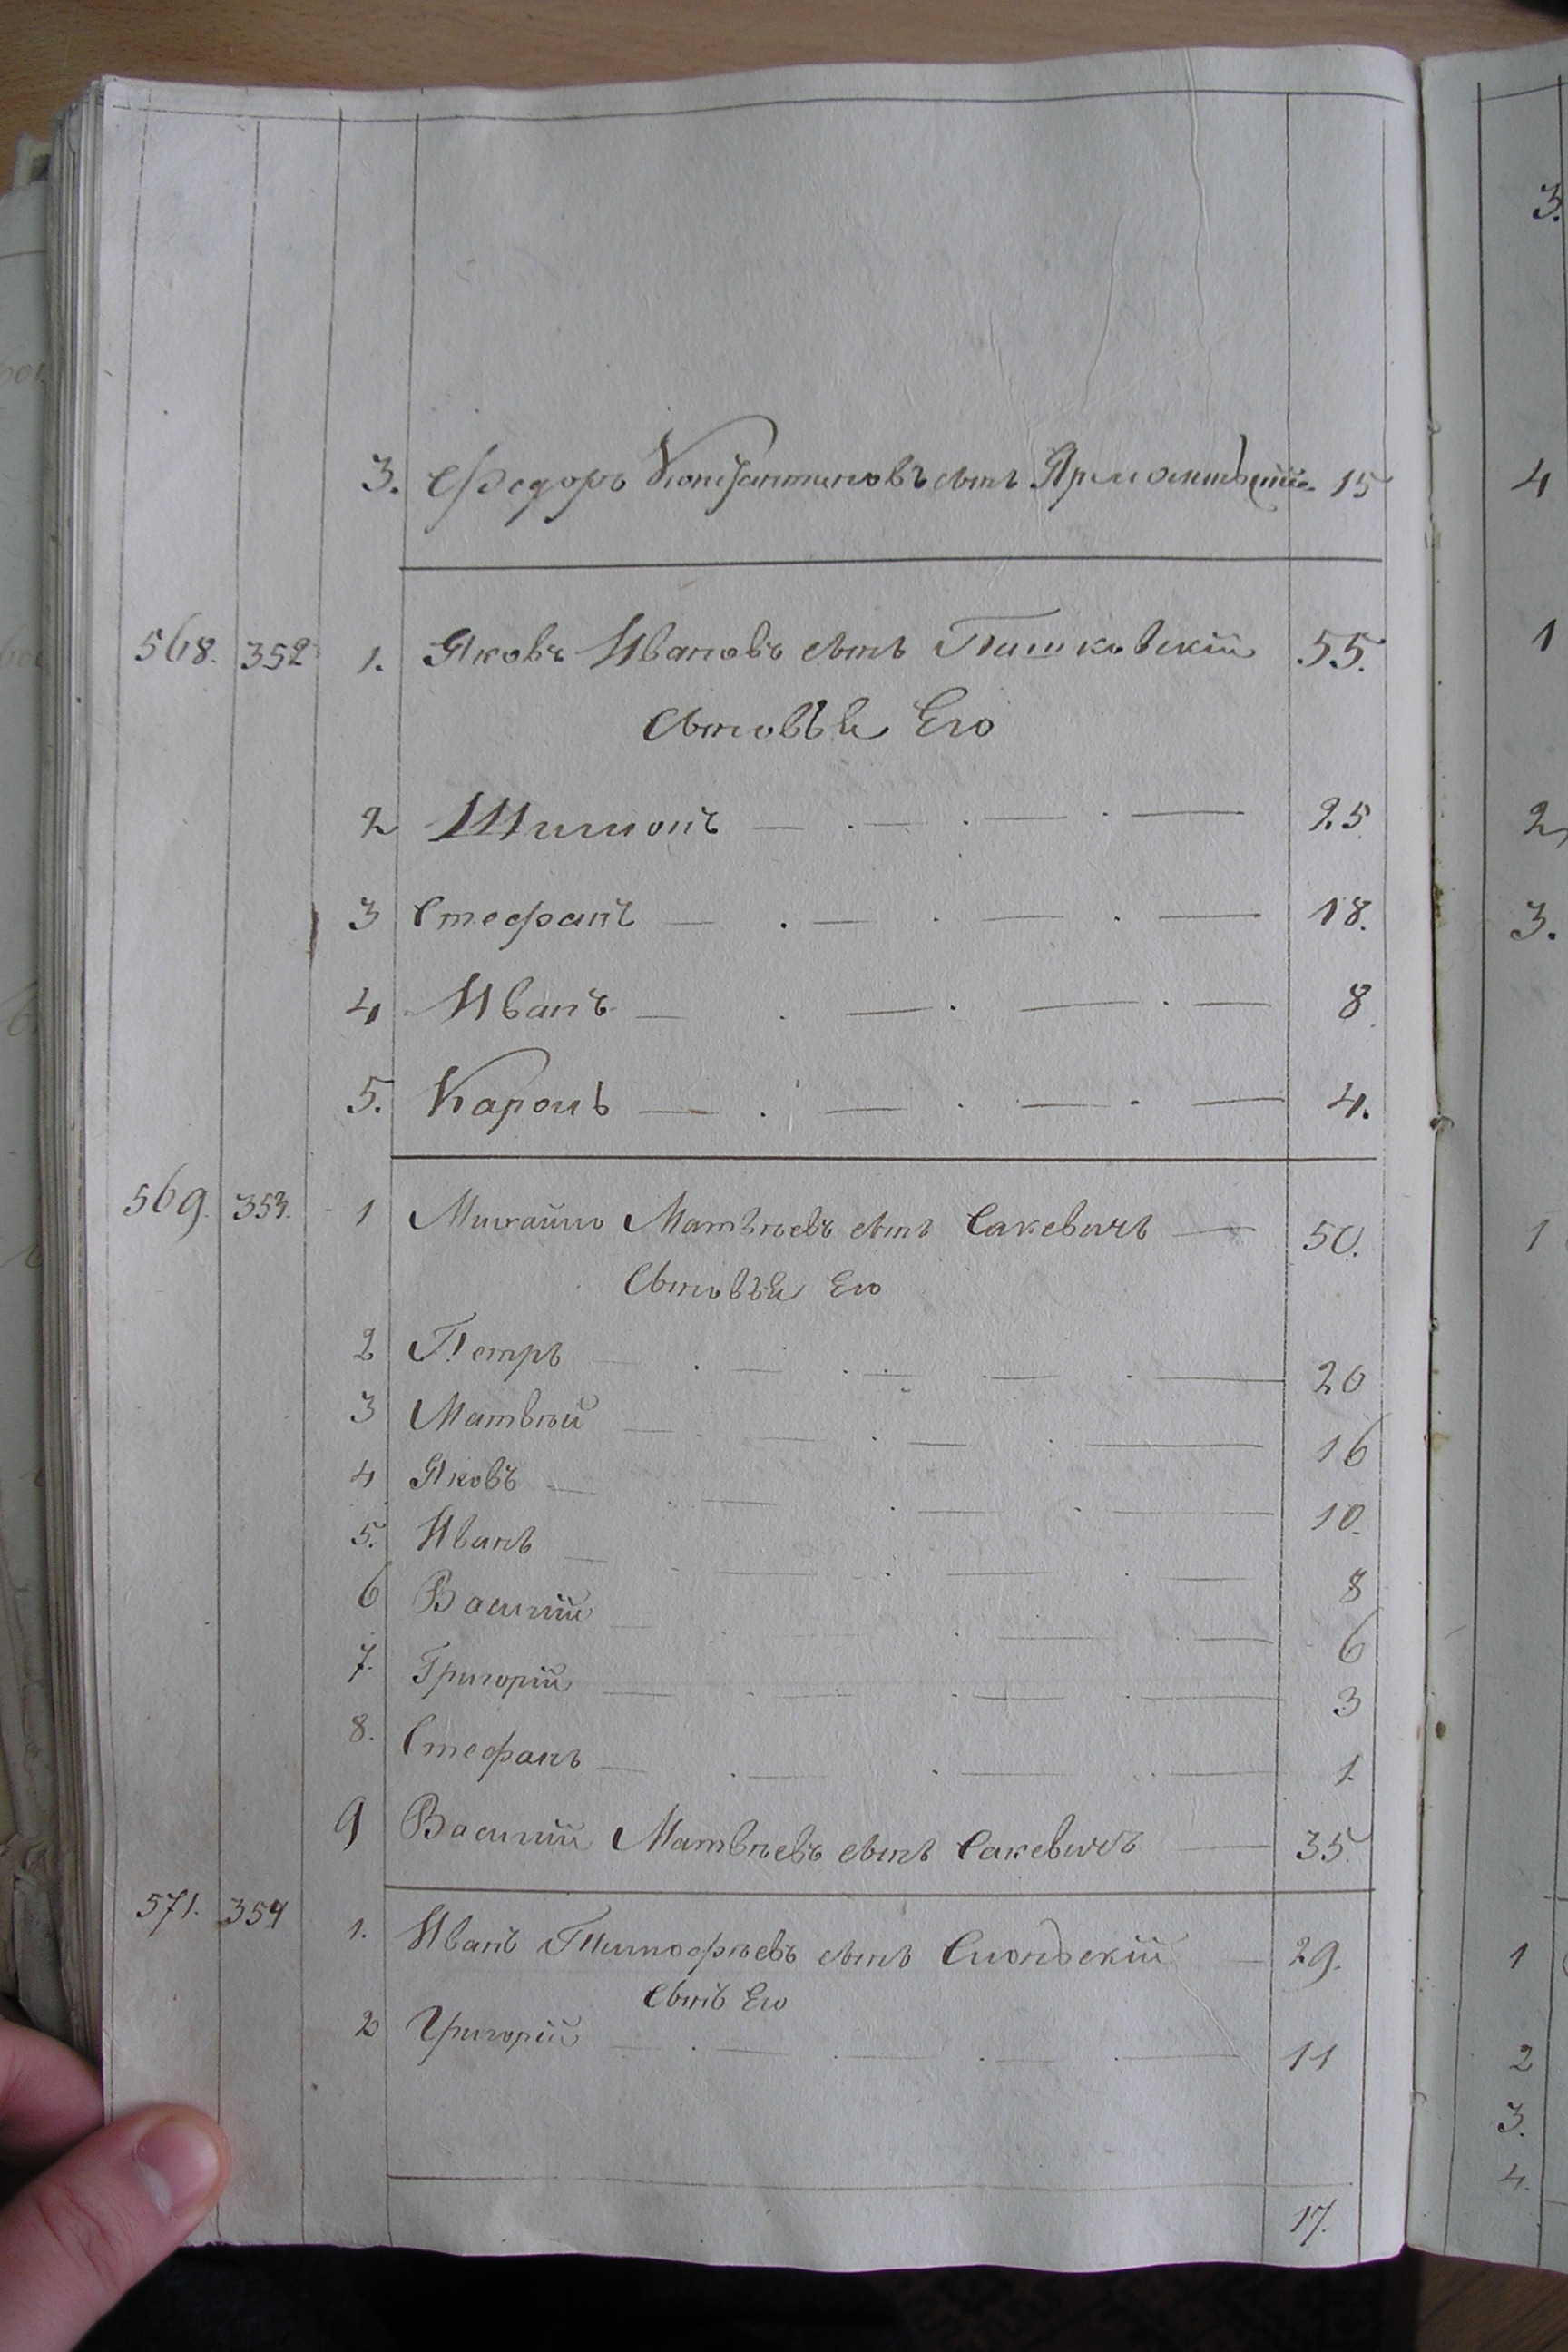 3. Федоръ Константиновъ сынъ 15
568. 352 1. Яковъ Ивановъ сынъ Пашковскій 55.
Сыновья Его
2 Шимонъ — . — . — . — 25
3 Стефанъ — . — . — . — 18.
4 Иванъ — . — . — . — 8
5. Кароль — . — . — . — 4.
569. 353. 1 Михайло Матвѣевъ сынъ Сакевичъ — 50.
Сыновья Его
2 Петръ — . — . — . — . — 20
3 Матвѣй — . — . — . — 16
4 Яковъ — . — . — . — 10.
5. Иванъ — . — . — . — 8
6 Василій — . — . — . — 6
7. Григорій — . — . — . — 3
8. Стефанъ — . — . — . — 1.
9 Василій Матвѣевъ сынъ Сакевичъ — 35.
571. 354 1. Иванъ Тимофѣевъ сынъ — 29.
Сынъ Его
2 Григорій — . — . — . — . — 11
17.
3.
4
1
2
3.
1
1
2
3.
4.